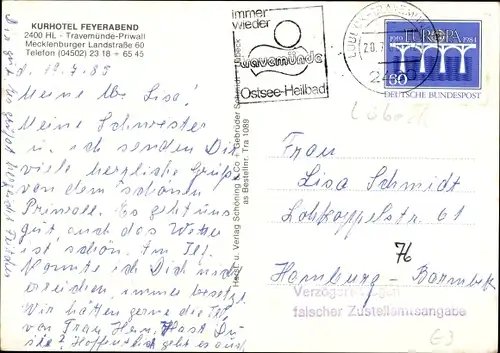 KURHOTEL FEYERABEND
2400 HL - Travemünde-Priwall
Mecklenburger Landstraße 60
Telefon (04502) 23 18 + 65 45
d. 19.7.85
Meine l. Lisa!
Meine Schwester
u. ich senden Dir
viele herzliche Grüße
von dem schönen
Priwall. Es geht uns
gut, auch das Wetter
ist schön. Am Tel.
konnte ich Dich nicht
erreichen, immer besetzt.
Wir hätten gerne die Tel.
von Frau Hein, Hast Du
sie? Hoffentlich geht es auch
immer
wieder
travemünde
Ostsee-Heilbad
Herst. u. Verlag Schöning & Co + Gebrüder Schmidt - Lübeck
as Bestellnr. Tra 1089
20.7.
2400
1959 EUROPA 1984
60
DEUTSCHE BUNDESPOST
Lübeck
Frau
Lisa Schmidt
Lohkoppelstr. 61
76
Hamburg - Barmbek
Verzögerung
falscher Zustellamtsangabe
G3